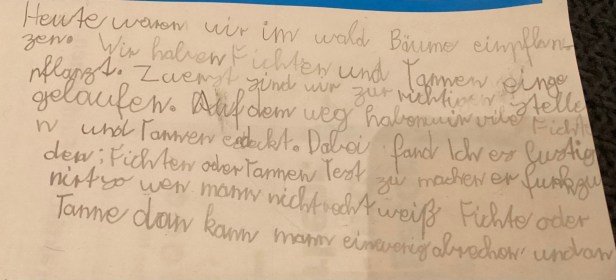 Heute waren wir im wald Bäume einpflan
zen. Wir haben Fichten und Tannen einge
npflanzt. Zuerst sind wir zur richtigen Stelle
gelaufen. Auf dem weg haben wir vile Fichte
n und Tannen edeckt. Dabei fand Ich es lustig
den: Fichten oder Tannen Test zu machen er funkzu
nirt so wen mann nicht recht weiß Fichte oder
Tanne dan kann mann ein wenig